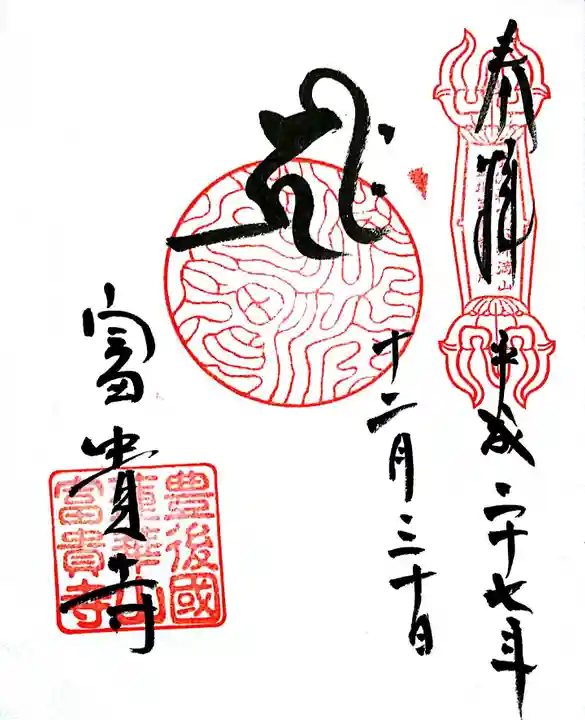 奉拝
平成二十七年
十二月三十日
富貴寺
豊後國
蓮華山
富貴寺